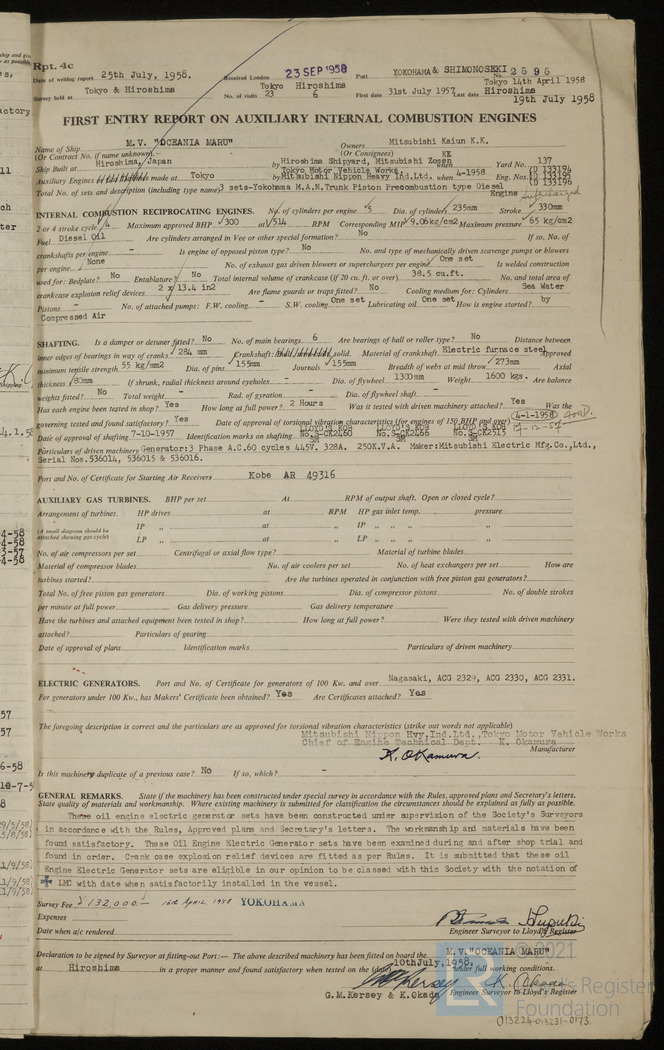 Rpt. 4c
Date of writing report 25th July, 1958. Received London 23 SEP 1958 Port YOKOHAMA & SHIMONOSEKI No. 2595
Survey held at Tokyo & Hiroshima No. of visits Tokyo 23 Hiroshima 6 First date 31st July 1957 Last date Tokyo 14th April 1958
Hiroshima 19th July 1958
FIRST ENTRY REPORT ON AUXILIARY INTERNAL COMBUSTION ENGINES
Name of Ship M.V. "OCEANIA MARU" Owners Mitsubishi Kaiun K.K.
(Or Contract No. if name unknown) (Or Consignees) KK
Ship Built at Hiroshima, Japan by Hiroshima Shipyard, Mitsubishi Zosen when Yard No. 137
Auxiliary Engines made at Tokyo by Tokyo Motor Vehicle Works, Mitsubishi Nippon Heavy Ind.Ltd. when 4-1958 Eng. Nos. CD 133194 CD 133195 CD 133196
Total No. of sets and description (including type name) 3 sets-Yokohama M.A.N.Trunk Piston Precombustion type Diesel Engine
INTERNAL COMBUSTION RECIPROCATING ENGINES. No. of cylinders per engine 5 Dia. of cylinders 235mm Stroke 330mm
2 or 4 stroke cycle 4 Maximum approved BHP 300 at 514 RPM Corresponding MIP 9.06kg/cm2 Maximum pressure 65 kg/cm2
Fuel Diesel Oil Are cylinders arranged in Vee or other special formation? No If so, No. of
crankshafts per engine - Is engine of opposed piston type? No No. and type of mechanically driven scavenge pumps or blowers
per engine None No. of exhaust gas driven blowers or superchargers per engine One set Is welded construction
used for: Bedplate? No Entablature? No Total internal volume of crankcase (if 20 cu. ft. or over) 38.5 cu.ft. No. and total area of
crankcase explosion relief devices 2 x 13.4 in2 Are flame guards or traps fitted? No Cooling medium for: Cylinders Sea Water
Pistons - No. of attached pumps: F.W. cooling - S.W. cooling One set Lubricating oil One set How is engine started? by
Compressed Air
SHAFTING. Is a damper or detuner fitted? No No. of main bearings 6 Are bearings of ball or roller type? No Distance between
inner edges of bearings in way of cranks 284 mm Crankshaft: solid. Material of crankshaft Electric furnace steel Approved
minimum tensile strength 55 kg/mm2 Dia. of pins 155mm Journals 155mm Breadth of webs at mid throw 273mm Axial
thickness 80mm If shrunk, radial thickness around eyeholes - Dia. of flywheel 1300mm Weight 1600 kgs. Are balance
weights fitted? No Total weight - Rad. of gyration - Dia. of flywheel shaft -
Has each engine been tested in shop? Yes How long at full power? 2 Hours Was it tested with driven machinery attached? Yes Was the
governing tested and found satisfactory? Yes Date of approval of torsional vibration characteristics (for engines of 150 BHP and over) (4-1-1958)
Date of approval of shafting 7-10-1957 Identification marks on shafting Lloyd's Kob No.S-CK2460 Lloyd's Kob No.S-CK2466 Lloyd's Kob No.S-CK2515
Particulars of driven machinery Generator:3 Phase A.C.60 cycles 445V. 328A. 250K.V.A. Maker:Mitsubishi Electric Mfg.Co.,Ltd.,
Serial Nos.536014, 536015 & 536016.
Port and No. of Certificate for Starting Air Receivers Kobe AR 49316
AUXILIARY GAS TURBINES. BHP per set At RPM of output shaft. Open or closed cycle?
Arrangement of turbines. HP drives at RPM HP gas inlet temp. pressure
(A small diagram should be attached showing gas cycle) IP " at " IP " " " "
LP " at " LP " " " "
No. of air compressors per set Centrifugal or axial flow type? Material of turbine blades
Material of compressor blades No. of air coolers per set No. of heat exchangers per set How are
turbines started? Are the turbines operated in conjunction with free piston gas generators?
Total No. of free piston gas generators Dia. of working pistons Dia. of compressor pistons No. of double strokes
per minute at full power Gas delivery pressure Gas delivery temperature
Have the turbines and attached equipment been tested in shop? How long at full power? Were they tested with driven machinery
attached? Particulars of gearing
Date of approval of plans Identification marks Particulars of driven machinery
ELECTRIC GENERATORS. Port and No. of Certificate for generators of 100 Kw. and over Nagasaki, ACG 2329, ACG 2330, ACG 2331.
For generators under 100 Kw., has Makers' Certificate been obtained? Yes Are Certificates attached? Yes
The foregoing description is correct and the particulars are as approved for torsional vibration characteristics (strike out words not applicable)
Mitsubishi Nippon Hvy.Ind.Ltd.,Tokyo Motor Vehicle Works
Chief of Engine Technical Dept. K. Okamura
K. Okamura. Manufacturer
Is this machinery duplicate of a previous case? No If so, which? -
GENERAL REMARKS. State if the machinery has been constructed under special survey in accordance with the Rules, approved plans and Secretary's letters.
State quality of materials and workmanship. Where existing machinery is submitted for classification the circumstances should be explained as fully as possible.
These oil engine electric generator sets have been constructed under supervision of the Society's Surveyors
in accordance with the Rules, Approved plans and Secretary's letters. The workmanship and materials have been
found satisfactory. These Oil Engine Electric Generator sets have been examined during and after shop trial and
found in order. Crank case explosion relief devices are fitted as per Rules. It is submitted that these oil
Engine Electric Generator sets are eligible in our opinion to be classed with this Society with the notation of
LMC with date when satisfactorily installed in the vessel.
Survey Fee £132,000 16th April 1958 YOKOHAMA
Expenses
Date when a/c rendered Engineer Surveyor to Lloyd's Register
Declaration to be signed by Surveyor at fitting-out Port:— The above described machinery has been fitted on board the M.V."OCEANIA MARU"
at Hiroshima in a proper manner and found satisfactory when tested on the (date) 10th July, 1958. under full working conditions.
G.M.Kersey & K.Okada Engineer Surveyor to Lloyd's Register
© 2021
Lloyd's Register
Foundation
013224-013231-0173